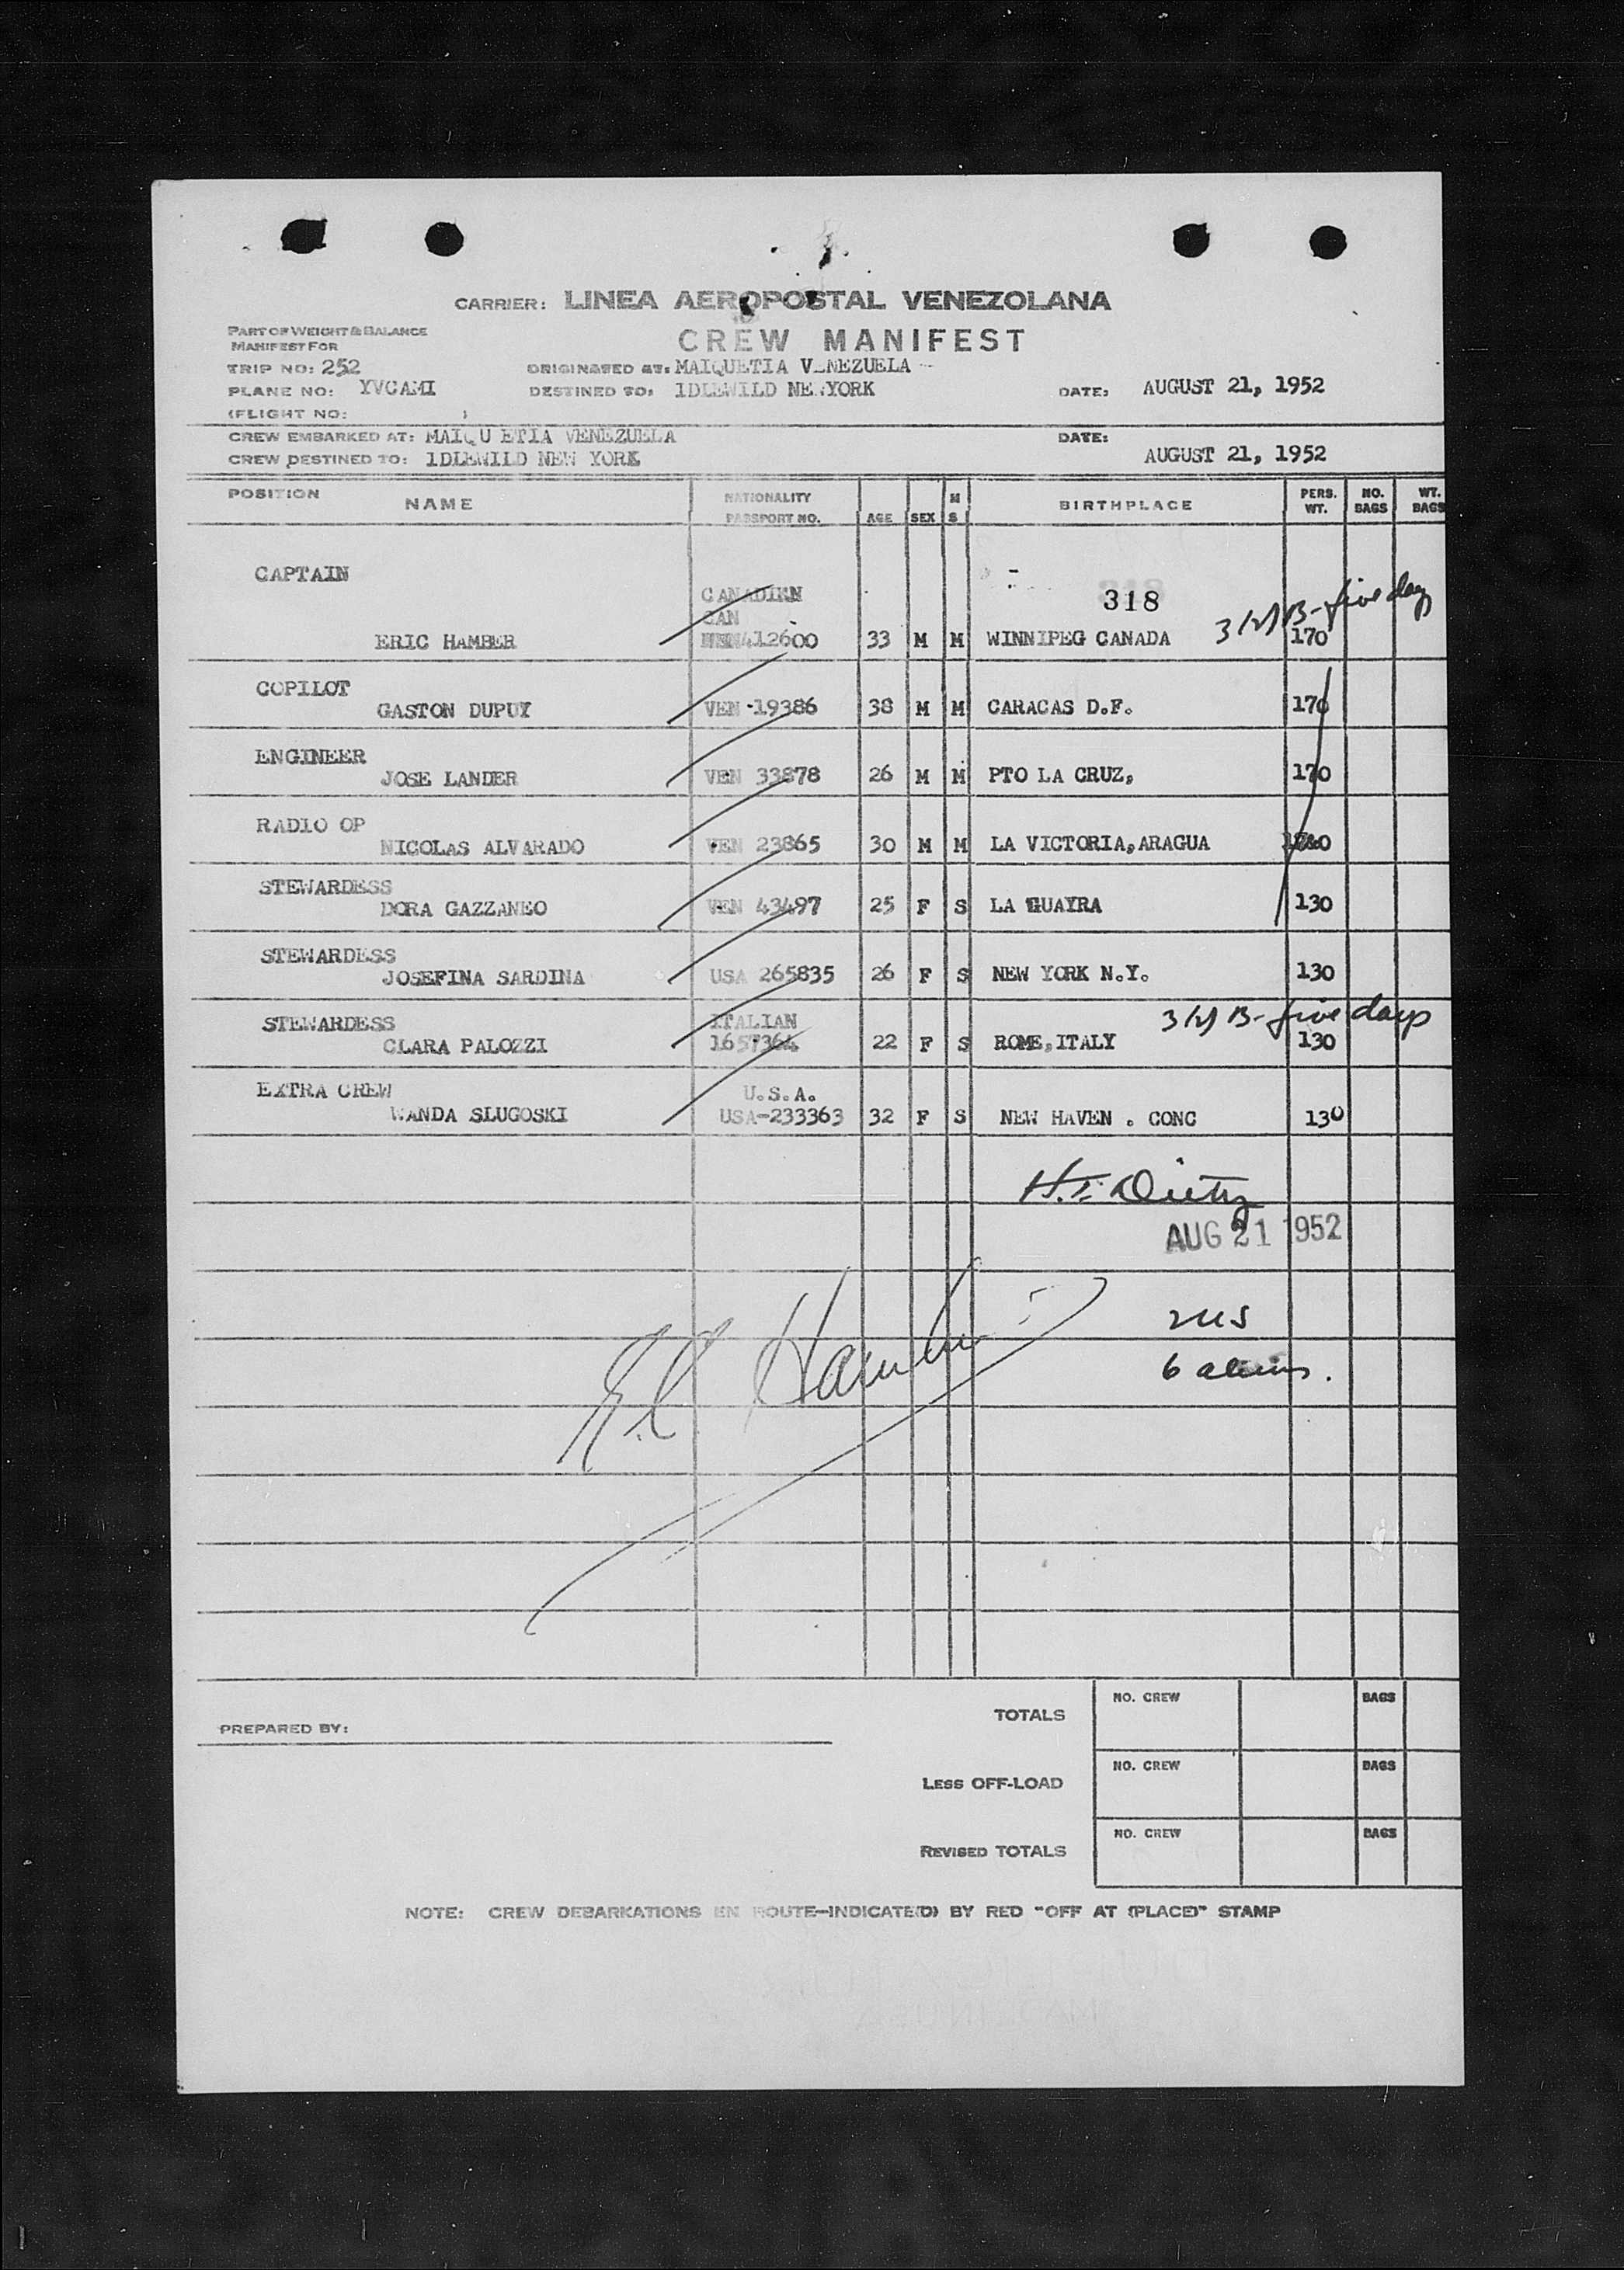 CARRIER: LINEA AEROPOSTAL VENEZOLANA
PART OF WEIGHT & BALANCE
MANIFEST FOR
CREW MANIFEST
TRIP NO: 252 ORIGINATED AT: MAIQUETIA VENEZUELA
PLANE NO: YVCAMI DESTINED TO: 1DLEWILD NEWYORK DATE: AUGUST 21, 1952
(FLIGHT NO: )
CREW EMBARKED AT: MAIQU ETIA VENEZUELA DATE:
CREW DESTINED TO: 1DLEWILD NEW YORK AUGUST 21, 1952
POSITION NAME NATIONALITY PASSPORT NO. AGE SEX M S BIRTHPLACE PERS. WT. NO. BAGS WT. BAGS
CAPTAIN
CANADIEN 318
CAN 3(2) B-five day
ERIC HAMBER 412600 33 M M WINNIPEG CANADA 170
COPILOT
GASTON DUPUY VEN -19386 38 M M CARACAS D.F. 170
ENGINEER
JOSE LANDER VEN 33878 26 M M PTO LA CRUZ, 170
RADIO OP
NICOLAS ALVARADO VEN 23865 30 M M LA VICTORIA,ARAGUA
STEWARDESS
DORA GAZZANEO VEN 43497 25 F S LA GUAYRA 130
STEWARDESS
JOSEFINA SARDINA USA 265835 26 F S NEW YORK N.Y. 130
STEWARDESS ITALIAN 3(2) B-five days
CLARA PALOZZI 1657364 22 F S ROME,ITALY 130
EXTRA CREW U.S.A.
WANDA SLUGOSKI USA-233363 32 F S NEW HAVEN . CONC 130
AUG 21 1952
2 US
6 aliens.
TOTALS NO. CREW BAGS
PREPARED BY:
LESS OFF-LOAD NO. CREW BAGS
REVISED TOTALS NO. CREW BAGS
NOTE: CREW DEBARKATIONS EN ROUTE-INDICATE(D) BY RED "OFF AT (PLACE)" STAMP